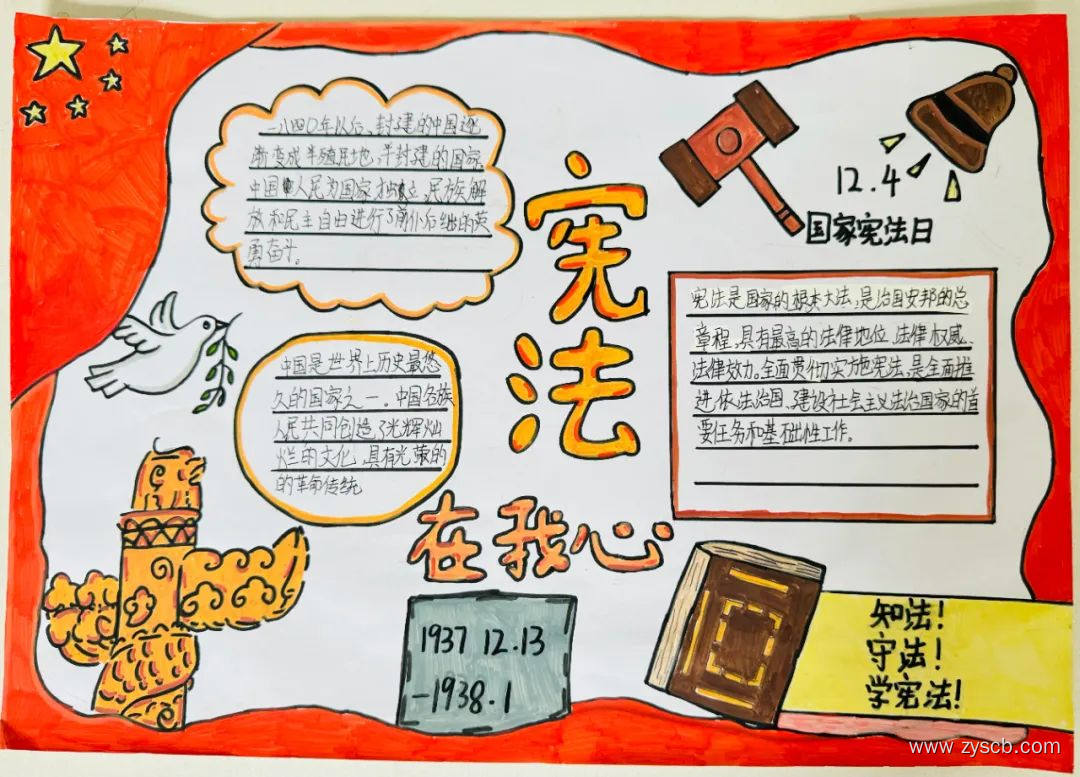 一八四〇年以后,封建的中国逐
渐变成半殖民地,半封建的国家
中国人民为国家独立、民族解
放和民主自由进行了前仆后继的英
勇奋斗。
宪法
在我心
12.4
国家宪法日
中国是世界上历史最悠
久的国家之一。中国各族
人民共同创造了光辉灿
烂的文化,具有光荣的
的革命传统
宪法是国家的根本大法,是治国安邦的总
章程,具有最高的法律地位、法律权威、
法律效力。全面贯彻实施宪法,是全面推
进依法治国、建设社会主义法治国家的首
要任务和基础性工作。
1937 12.13
-1938.1
知法!
守法!
学宪法!
www.zyscb.com